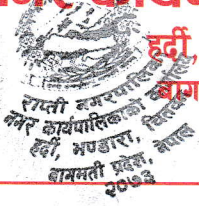 हर्दी,
बाग
राप्ती नगरपालिका
नगर कार्यपालिकाको कार्यालय
हर्दी, भण्डारा, चितवन
बागमती प्रदेश, नेपाल
२०७३